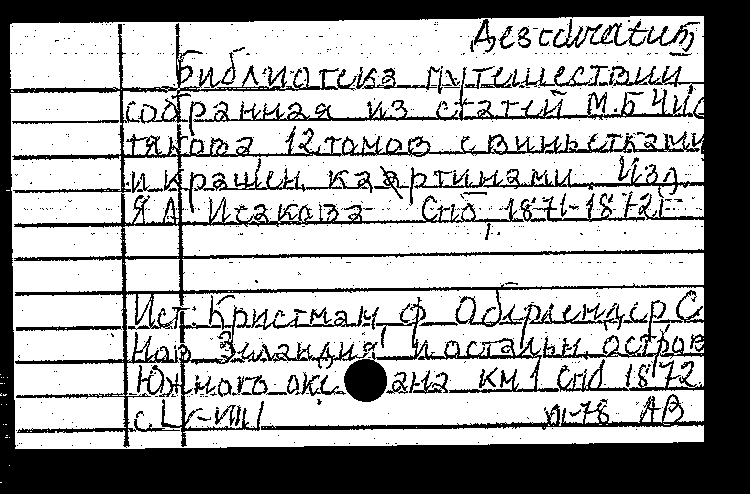 Desiderata
Библиотека путешествий,
собранная из статей М.Б Чис
тякова, 12 томов с виньетками
и крашен. картинами. Изд.
Я А Исакова Спб, 1871-1872г
Ист: Кристман, Ф Оберлендер С
Нов Зиландия и остальн. остров
Южного океана кн 1 Спб 1872.
VII-78 АВ